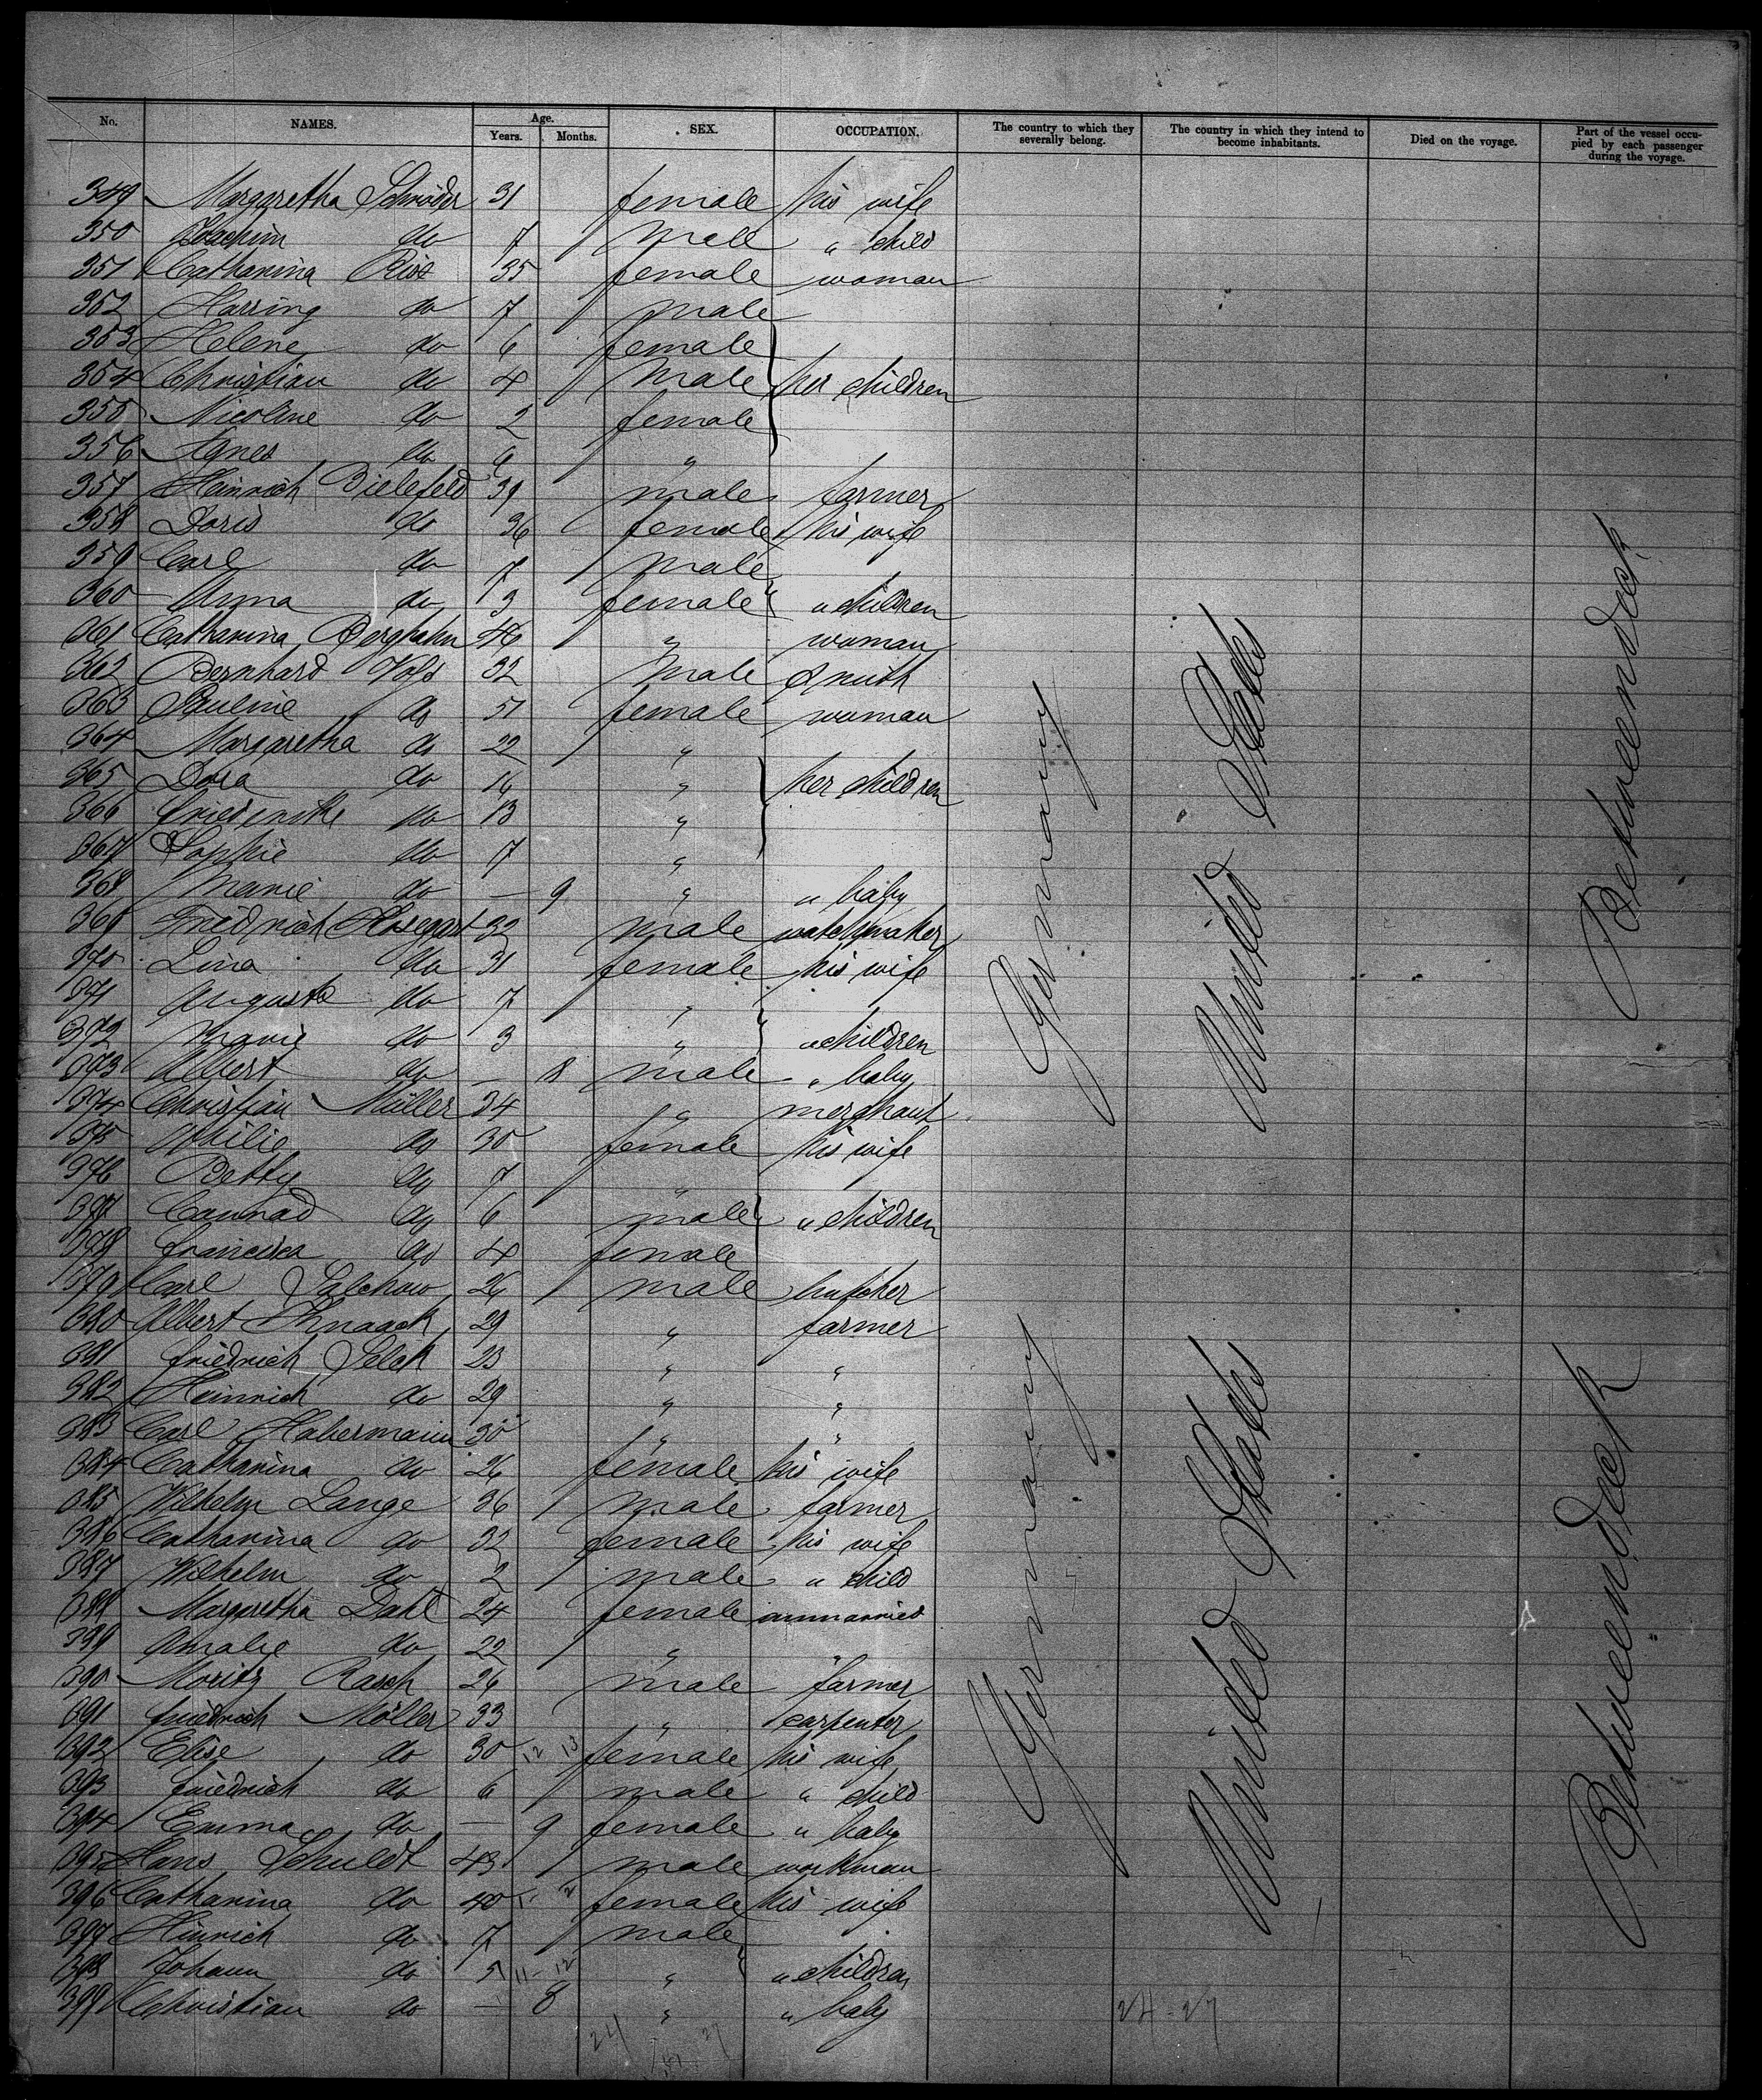 No. NAMES. Age. Years. Months. SEX. OCCUPATION. The country to which they severally belong. The country in which they intend to become inhabitants. Died on the voyage. Part of the vessel occupied by each passenger during the voyage.
349 Margaretha Schröder 31 female his wife
350 Joachim do 7 male " child
351 Catharina 35 female woman
352 Harring do 7 male
353 Helene do 6 female
354 Christian do 4 male her children
355 Nicoline do 2 female
356 Agnes do "
357 Heinrich Bielefeld 39 male farmer
358 Doris do 36 female his wife
359 Carl do 7 male
360 Anna do 3 female " children
361 Catharina Berghahn 46 " woman
362 Bernhard Voss 32 male smith
363 Pauline do 51 female woman
364 Margaretha do 22 "
365 Dora do 14 " her children
366 do 13 "
367 Sophie do 7 "
368 Marie do — 9 " " baby
369 Friedrich 32 male watchmaker
370 Lina do 31 female his wife
371 Auguste do 7 "
372 Marie do 3 " " children
373 Albert do — 8 male " baby
374 Christian Müller 34 " merchant
375 do 30 female his wife
376 Betty do 7 "
377 Conrad do 6 male " children
378 Francisca do 4 female
379 Carl Salchow 26 male butcher
380 Albert 29 " farmer
381 Friedrich Selck 23 " "
382 Heinrich do 29 " "
383 Carl Habermann 30 " "
384 Catharina do 26 female his wife
385 Wilhelm Lange 36 male farmer
386 Catharina do 32 female his wife
387 Wilhelm do 2 male " child
388 Margaretha Dahl 24 female unmarried
389 Amalie do 22 " "
390 Moritz Rasch 26 male farmer
391 Friedrich Möller 33 " carpenter
392 Elise do 30 female his wife
393 Friedrich do 6 male " child
394 Emma do — 9 female " baby
395 Hans Schuldt 43 male workman
396 Catharina do 40 female his wife
397 Hinrich do 7 male
398 Johann do 5 11-12 " " children
399 Christian do — 8 " " baby
Germany United States Betweendeck
Germany United States Betweendeck
24-27